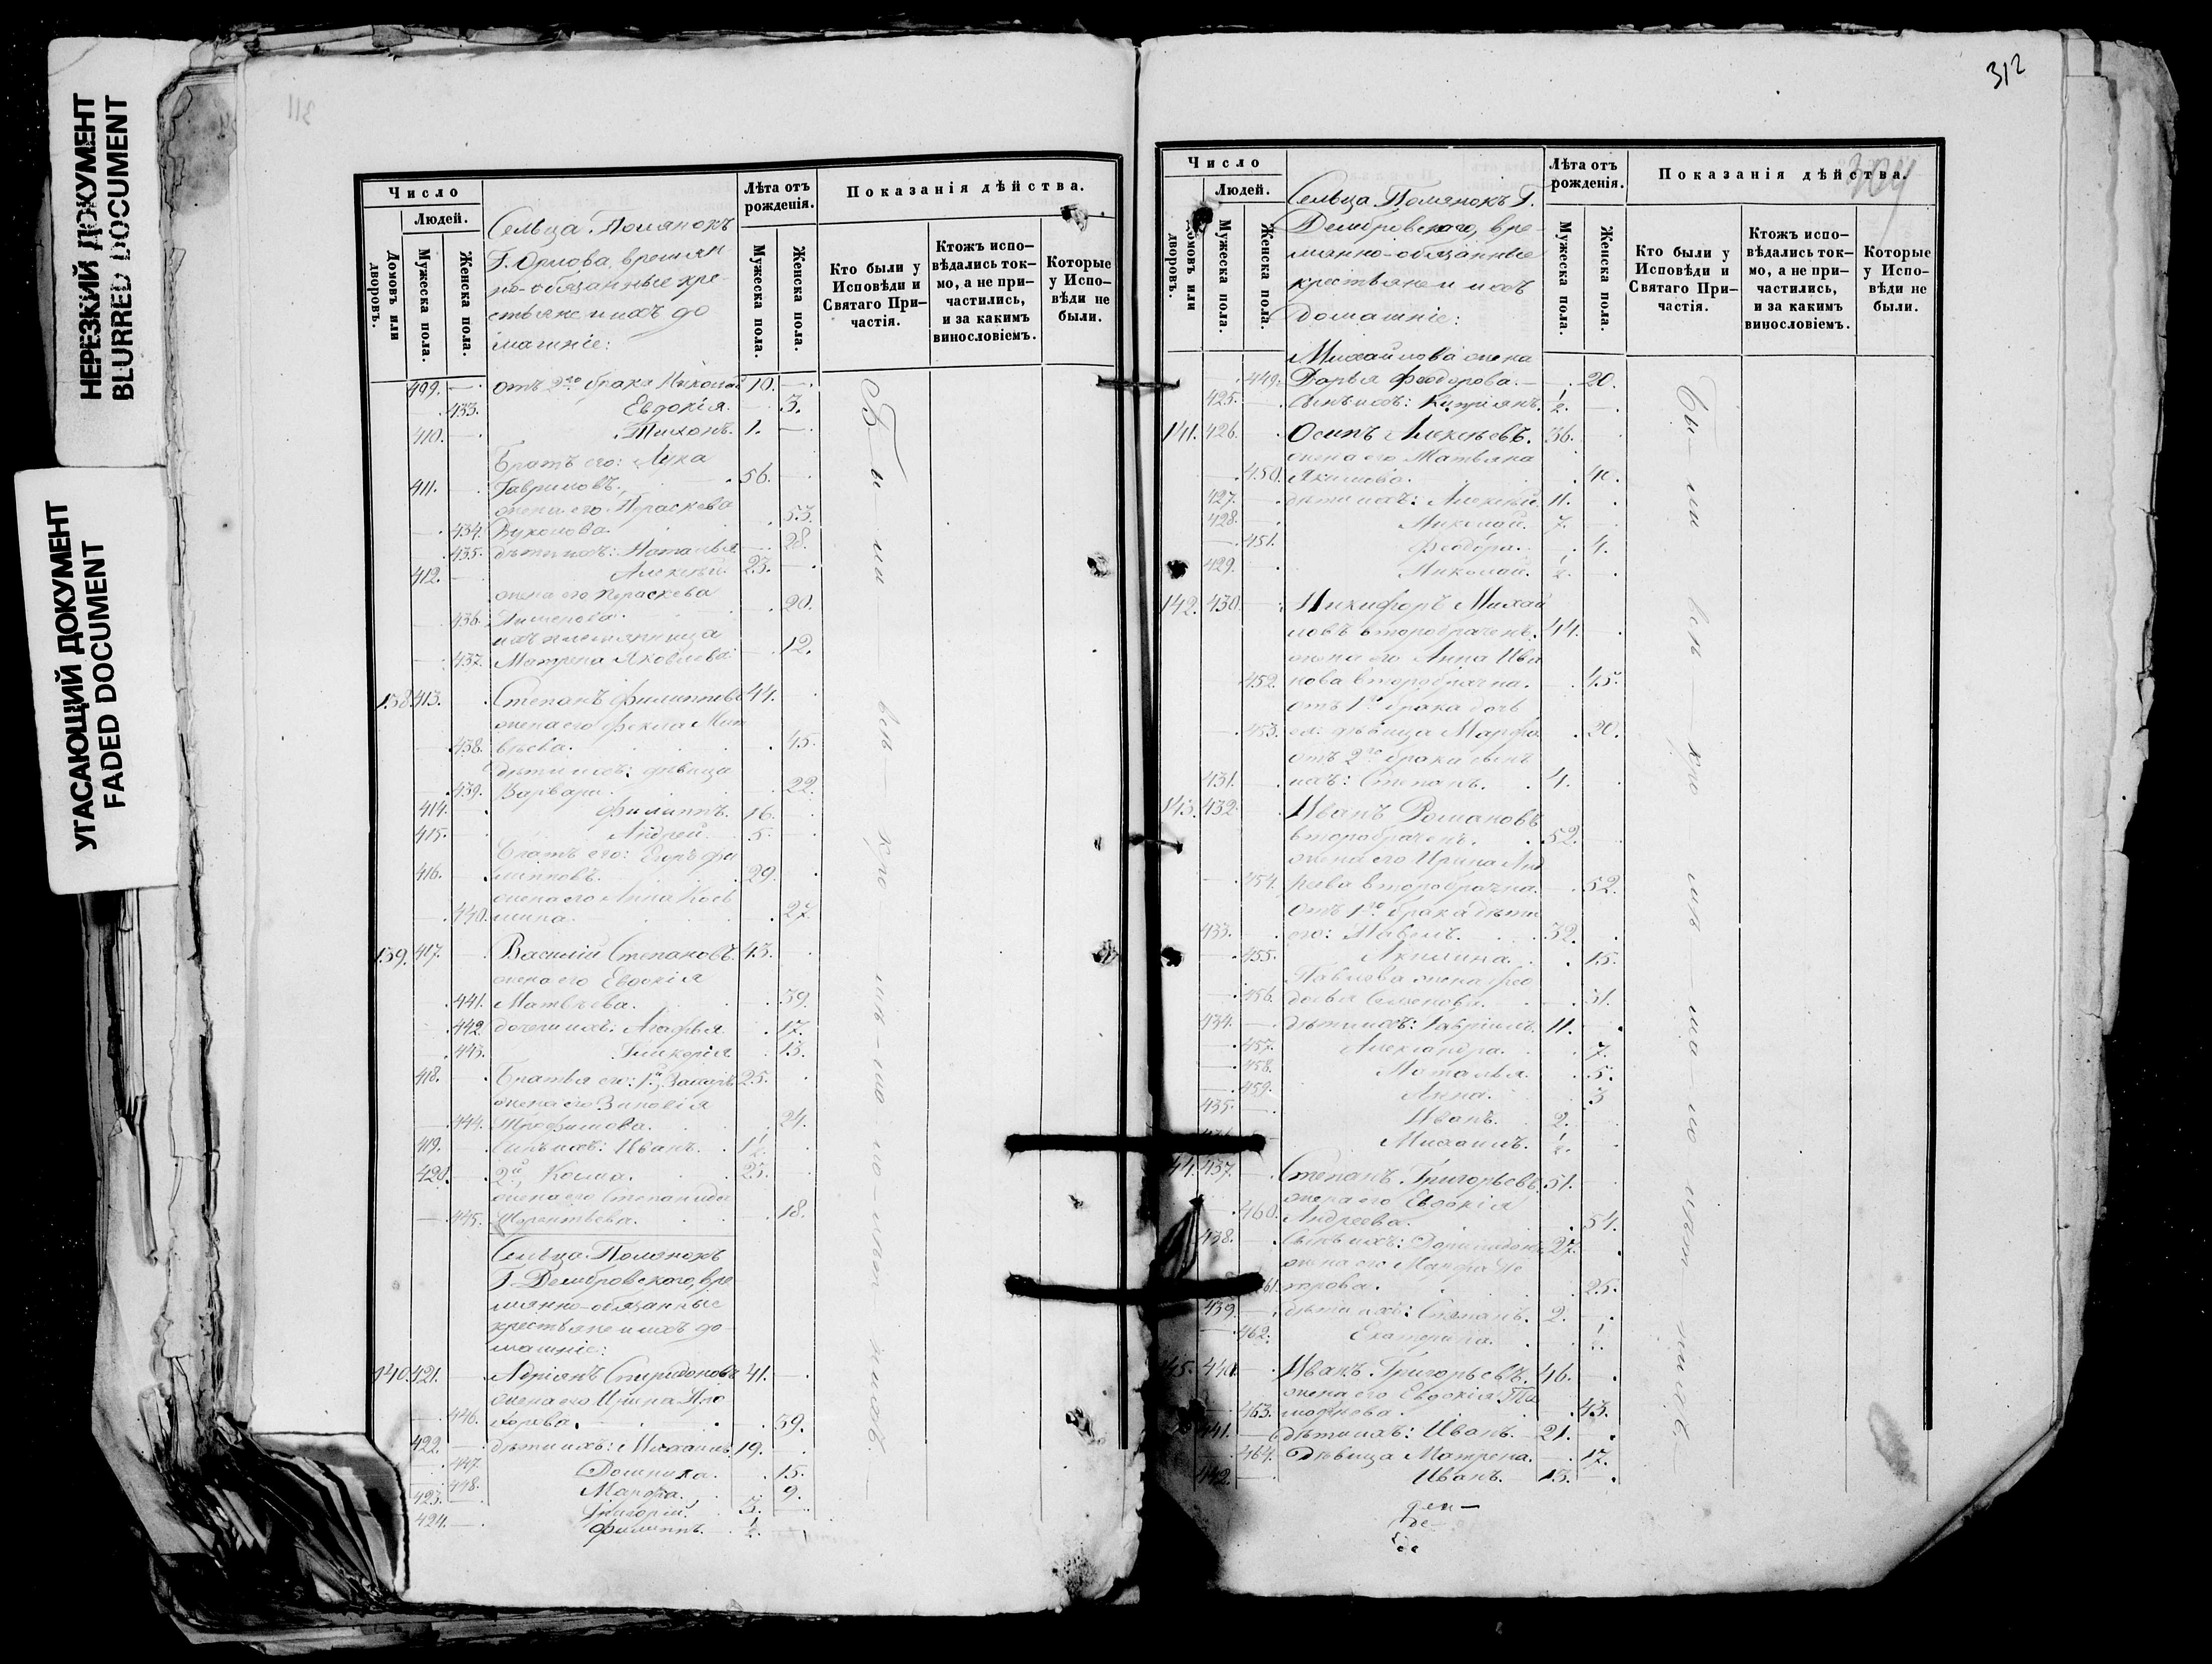 НЕРЕЗКИЙ ДОКУМЕНТ
BLURRED DOCUMENT
УГАСАЮЩИЙ ДОКУМЕНТ
FADED DOCUMENT
Число
Людей.
Домовъ или дворовъ.
Мужеска пола.
Женска пола.
Сельца Полянокъ
Г. Орлова, времян
но-обязанные кре-
стьяне и ихъ до
машніе:
Лѣта отъ рожденія.
Мужеска пола.
Женска пола.
Показанія дѣйства.
Кто были у Исповѣди и Святаго Причастія.
Ктожъ исповѣдались токмо, а не причастились, и за какимъ винословіемъ.
Которые у Исповѣди не были.
499. — отъ 2го брака Николай 10. —
433. Евдокія. — 3.
410. — Тихонъ. 1. —
Братъ его: Лука
411. Гавриловъ. 56.
жена его Параскева
434. Вуколова. 53.
435. дѣти ихъ: Наталья — 28.
412. — Алексѣй. 23. —
жена его Параскева
436. Пименова. 20.
ихъ племянница
437. Матрена Яковлева — 12.
138. 413. Степанъ Филиппов 44.
жена его Фекла Мат
438. вѣева. 45.
дѣти ихъ: дѣвица
439. Варвара. 22.
414. Филиппъ. 16.
415. Андрей. 5.
Братъ его: Егоръ Фи
416. липповъ. 29.
жена его Анна Косъ
440. мина. 27.
139. 417. Василій Степановъ. 43.
жена его Евдокія
441. Матвѣева. 39.
442. дочери ихъ: Агафья. 17.
443. Гликерія. 13.
418. Братья его: 1й, Захаръ 25.
жена его Зиновія
444. Трофимова. 24.
419. Сынъ ихъ: Иванъ. 1½
420. 2й, Козма. 23.
жена его Степанида
445. 18.
Сельца Полянокъ
Г. Демبровскаго, вре
мянно-обязанные
крестьяне и ихъ до-
машніе:
140. 421. Адріянъ Спиридоновъ 41.
жена его Ирина Про
446. хорова. 39.
422. дѣти ихъ: Михаилъ. 19.
447. Домника. 15.
448. Марфа. 9.
423. Григорій. 3.
424. Филиппъ. ½
Бы — ли — всѣ — кро — мѣ — ма — ло — лѣт — нихъ. —
312
304
Число
Людей.
Домовъ или дворовъ.
Мужеска пола.
Женска пола.
Сельца Полянокъ Г.
Дембровскаго, вре-
мянно-обязанные
крестьяне и ихъ
домашніе:
Лѣта отъ рожденія.
Мужеска пола.
Женска пола.
Показанія дѣйства.
Кто были у Исповѣди и Святаго Причастія.
Ктожъ исповѣдались токмо, а не причастились, и за какимъ винословіемъ.
Которые у Исповѣди не были.
Михайлова жена
449. Дарья Феодорова. — 20.
425. Сынъ ихъ: Кипріянъ. ½
141. 426. Осипъ Алексѣевъ. 36.
жена его Татьяна
450. Якимова. 40.
427. дѣти ихъ: Алексѣй. 11.
428. Николай. 7.
451. Феодора. 4.
429. Николай. ½
142. 430. Никифоръ Михай
ловъ второбраченъ. 44.
жена его Анна Ива
452. нова второбрачна. 45.
отъ 1го брака дочь
453. ея: дѣвица Марфа 20.
отъ 2го брака сынъ
431. ихъ: Степанъ. 4.
143. 432. Иванъ Романовъ
второбраченъ. 52.
жена его Ирина Анд
454. реева второбрачна. 52.
отъ 1го брака дѣти
433. его: Павелъ. 32.
455. Акилина. 15.
Павлова жена Фео
456. досья Семенова. 31.
434. дѣти ихъ: Гавріилъ. 11.
457. Александра. 7.
458. Наталья. 5.
459. Анна. 3
435. Иванъ. 2.
Михаилъ. ½
44. 437. Степанъ Григорьевъ 51.
жена его Евдокія
460. Андреева. 54.
438. Сынъ ихъ: 27.
жена его Марфа
61. 25.
439. дѣти ихъ: Степанъ. 2.
462. Екатерина. ½
45. 440. Иванъ Григорьевъ. 46.
жена его Евдокія Ти
463. мофеева. 43.
441. дѣти ихъ: Иванъ. 21.
464. Дѣвица Матрена. 17.
442. Иванъ. 13.
Бы — ли — всѣ — кро — мѣ — ма — ло — лѣт — нихъ. —